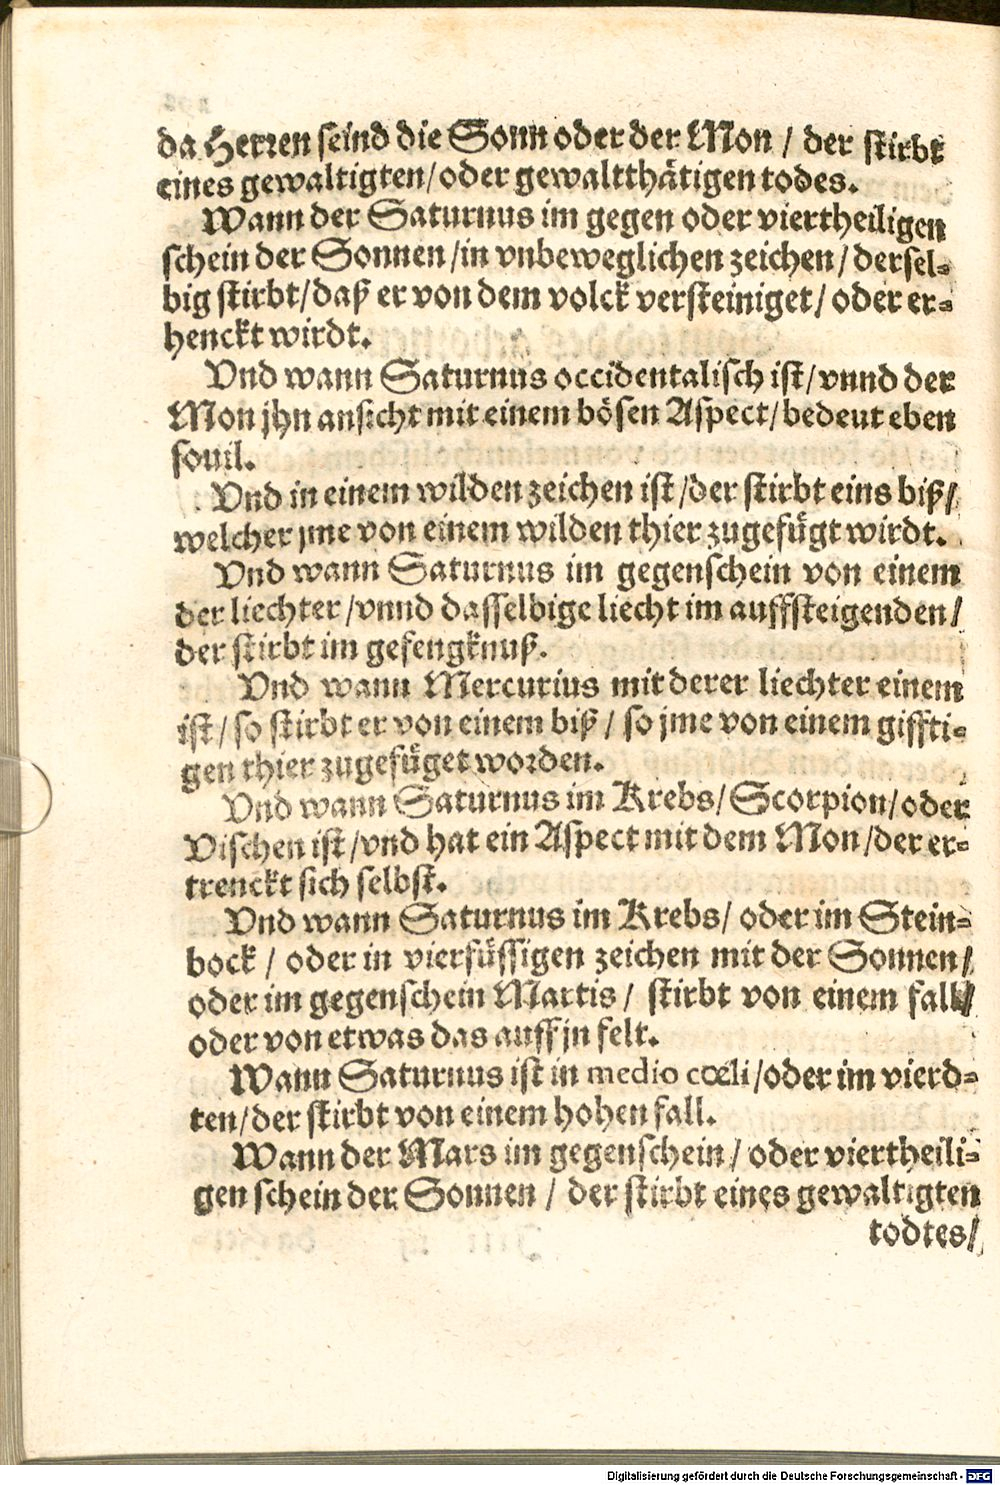 da Herren seind die Sonn oder der Mon / der stirbt
eines gewaltigten/ oder gewaltthätigen todes.
Wann der Saturnus im gegen oder viertheiligen
schein der Sonnen /in vnbeweglichen zeichen / dersel-
big stirbt/ daß er von dem volck versteiniget/ oder er-
henckt wirdt.
Vnd wann Saturnus occidentalisch ist/ vnnd der
Mon jhn ansicht mit einem bösen Aspect/ bedeut eben
souil.
Vnd in einem wilden zeichen ist /der stirbt eins biß/
welcher jme von einem wilden thier zugefügt wirdt.
Vnd wann Saturnus im gegenschein von einem
der liechter /vnnd dasselbige liecht im auffsteigenden/
der stirbt im gefengknuß.
Vnd wann Mercurius mit derer liechter einem
ist/ so stirbt er von einem biß / so jme von einem giffti-
gen thier zugefüget worden.
Vnd wann Saturnus im Krebs/ Scorpion/ oder
Vischen ist /vnd hat ein Aspect mit dem Mon /der er-
trenckt sich selbst.
Vnd wann Saturnus im Krebs/ oder im Stein-
bock / oder in vierfüssigen zeichen mit der Sonnen/
oder im gegenschein Martis / stirbt von einem fall/
oder von etwas das auff jn felt.
Wann Saturnus ist in medio cœli /oder im vierd-
ten/ der stirbt von einem hohen fall.
Wann der Mars im gegenschein / oder viertheili-
gen schein der Sonnen / der stirbt eines gewaltigten
todtes/
Digitalisierung gefördert durch die Deutsche Forschungsgemeinschaft - DFG